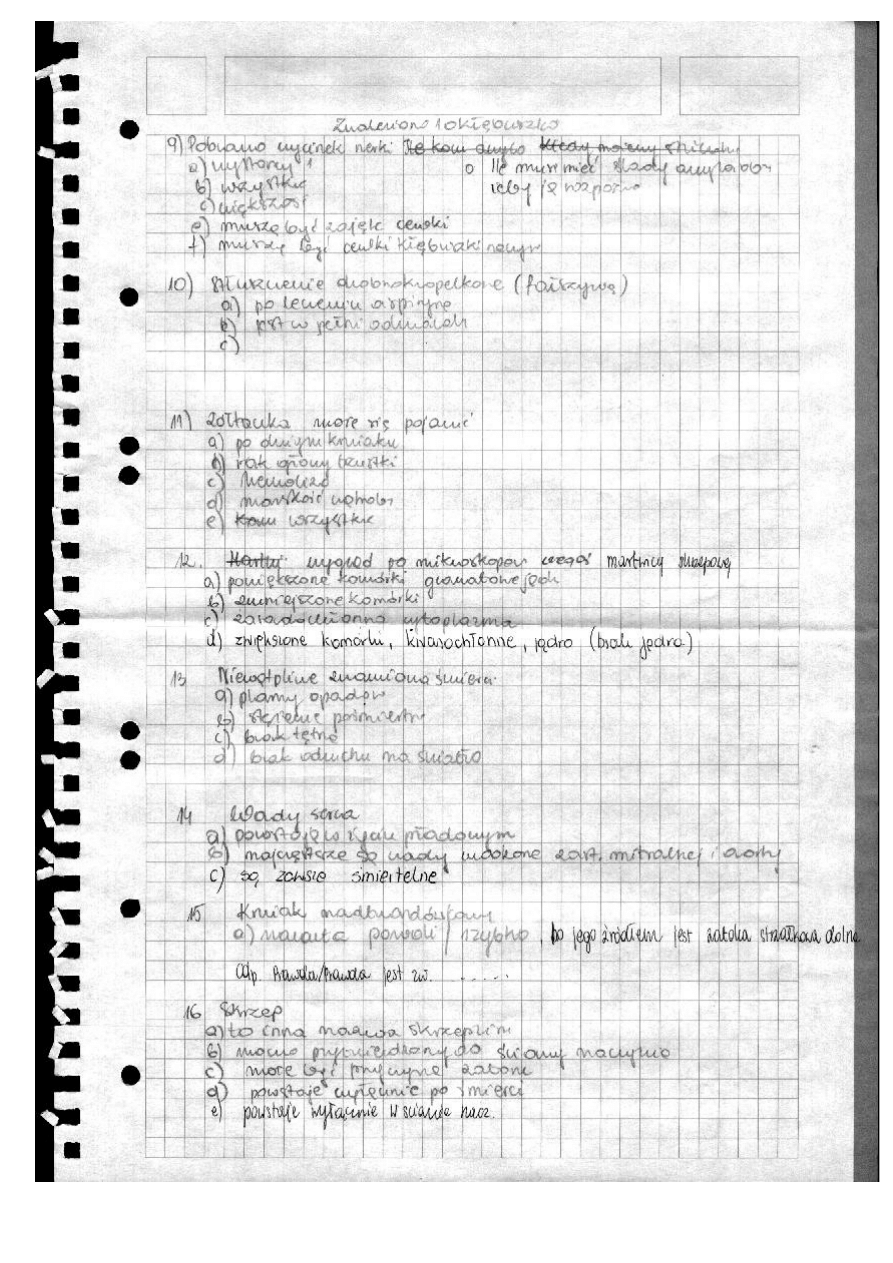 Znaleziono 1 okłębuszko
9) Pobrano wycinek nerki Ile kom amylo kiedy możemy
a) wystarczy 1
o Ile musi mieć ślady amyloidu
b) wszystkie
żeby ją rozpozna
c) większość
e) muszą być zajęte cewki
f) muszą być cewki kłębuszki naczyn
10) Stłuszczenie drobnokropelkowe (fałszywe)
a) po leczeniu aspiryną
b) jest w pełni odwracaln
c)
11) żółtaczka może się pojawić
a) po dużym krwiaku
b) rak głowy trzustki
c) hemoliza
d) marskość wątroby
e) wszystkie
12. wygląd po mikroskopem czegoś martwicy skrzepowej
a) powiększone komórki granatowe jądr
b) zmniejszone komórki
c) zasadochłonna cytoplazma
d) zwiększone komórki, kwasochłonne, jądro (brak jądra)
13 Niewątpliwe znamiona śmierci
a) plamy opadow
b) stężenie pośmiertne
c) brak tętna
d) brak odruchu na światło
14 Wady serca
a) powstają w życiu płodowym
b) najczęstsze są wady wrodzone zast. mitralnej i aorty
c) są zawsze śmiertelne
15 Krwiak nadtwardówkowy
a) narasta powoli / szybko, bo jego źródłem jest zatoka strzałkowa dolna
Odp. Prawda/Prawda jest zw. . . . . .
16 Skrzep
a) to inna nazwa skrzepliny
b) mocno przytwierdzony do ściany naczynia
c) może być przyczyną zatoru
d) powstaje wyłącznie po śmierci
e) powstaje wyłącznie w ścianie nacz.